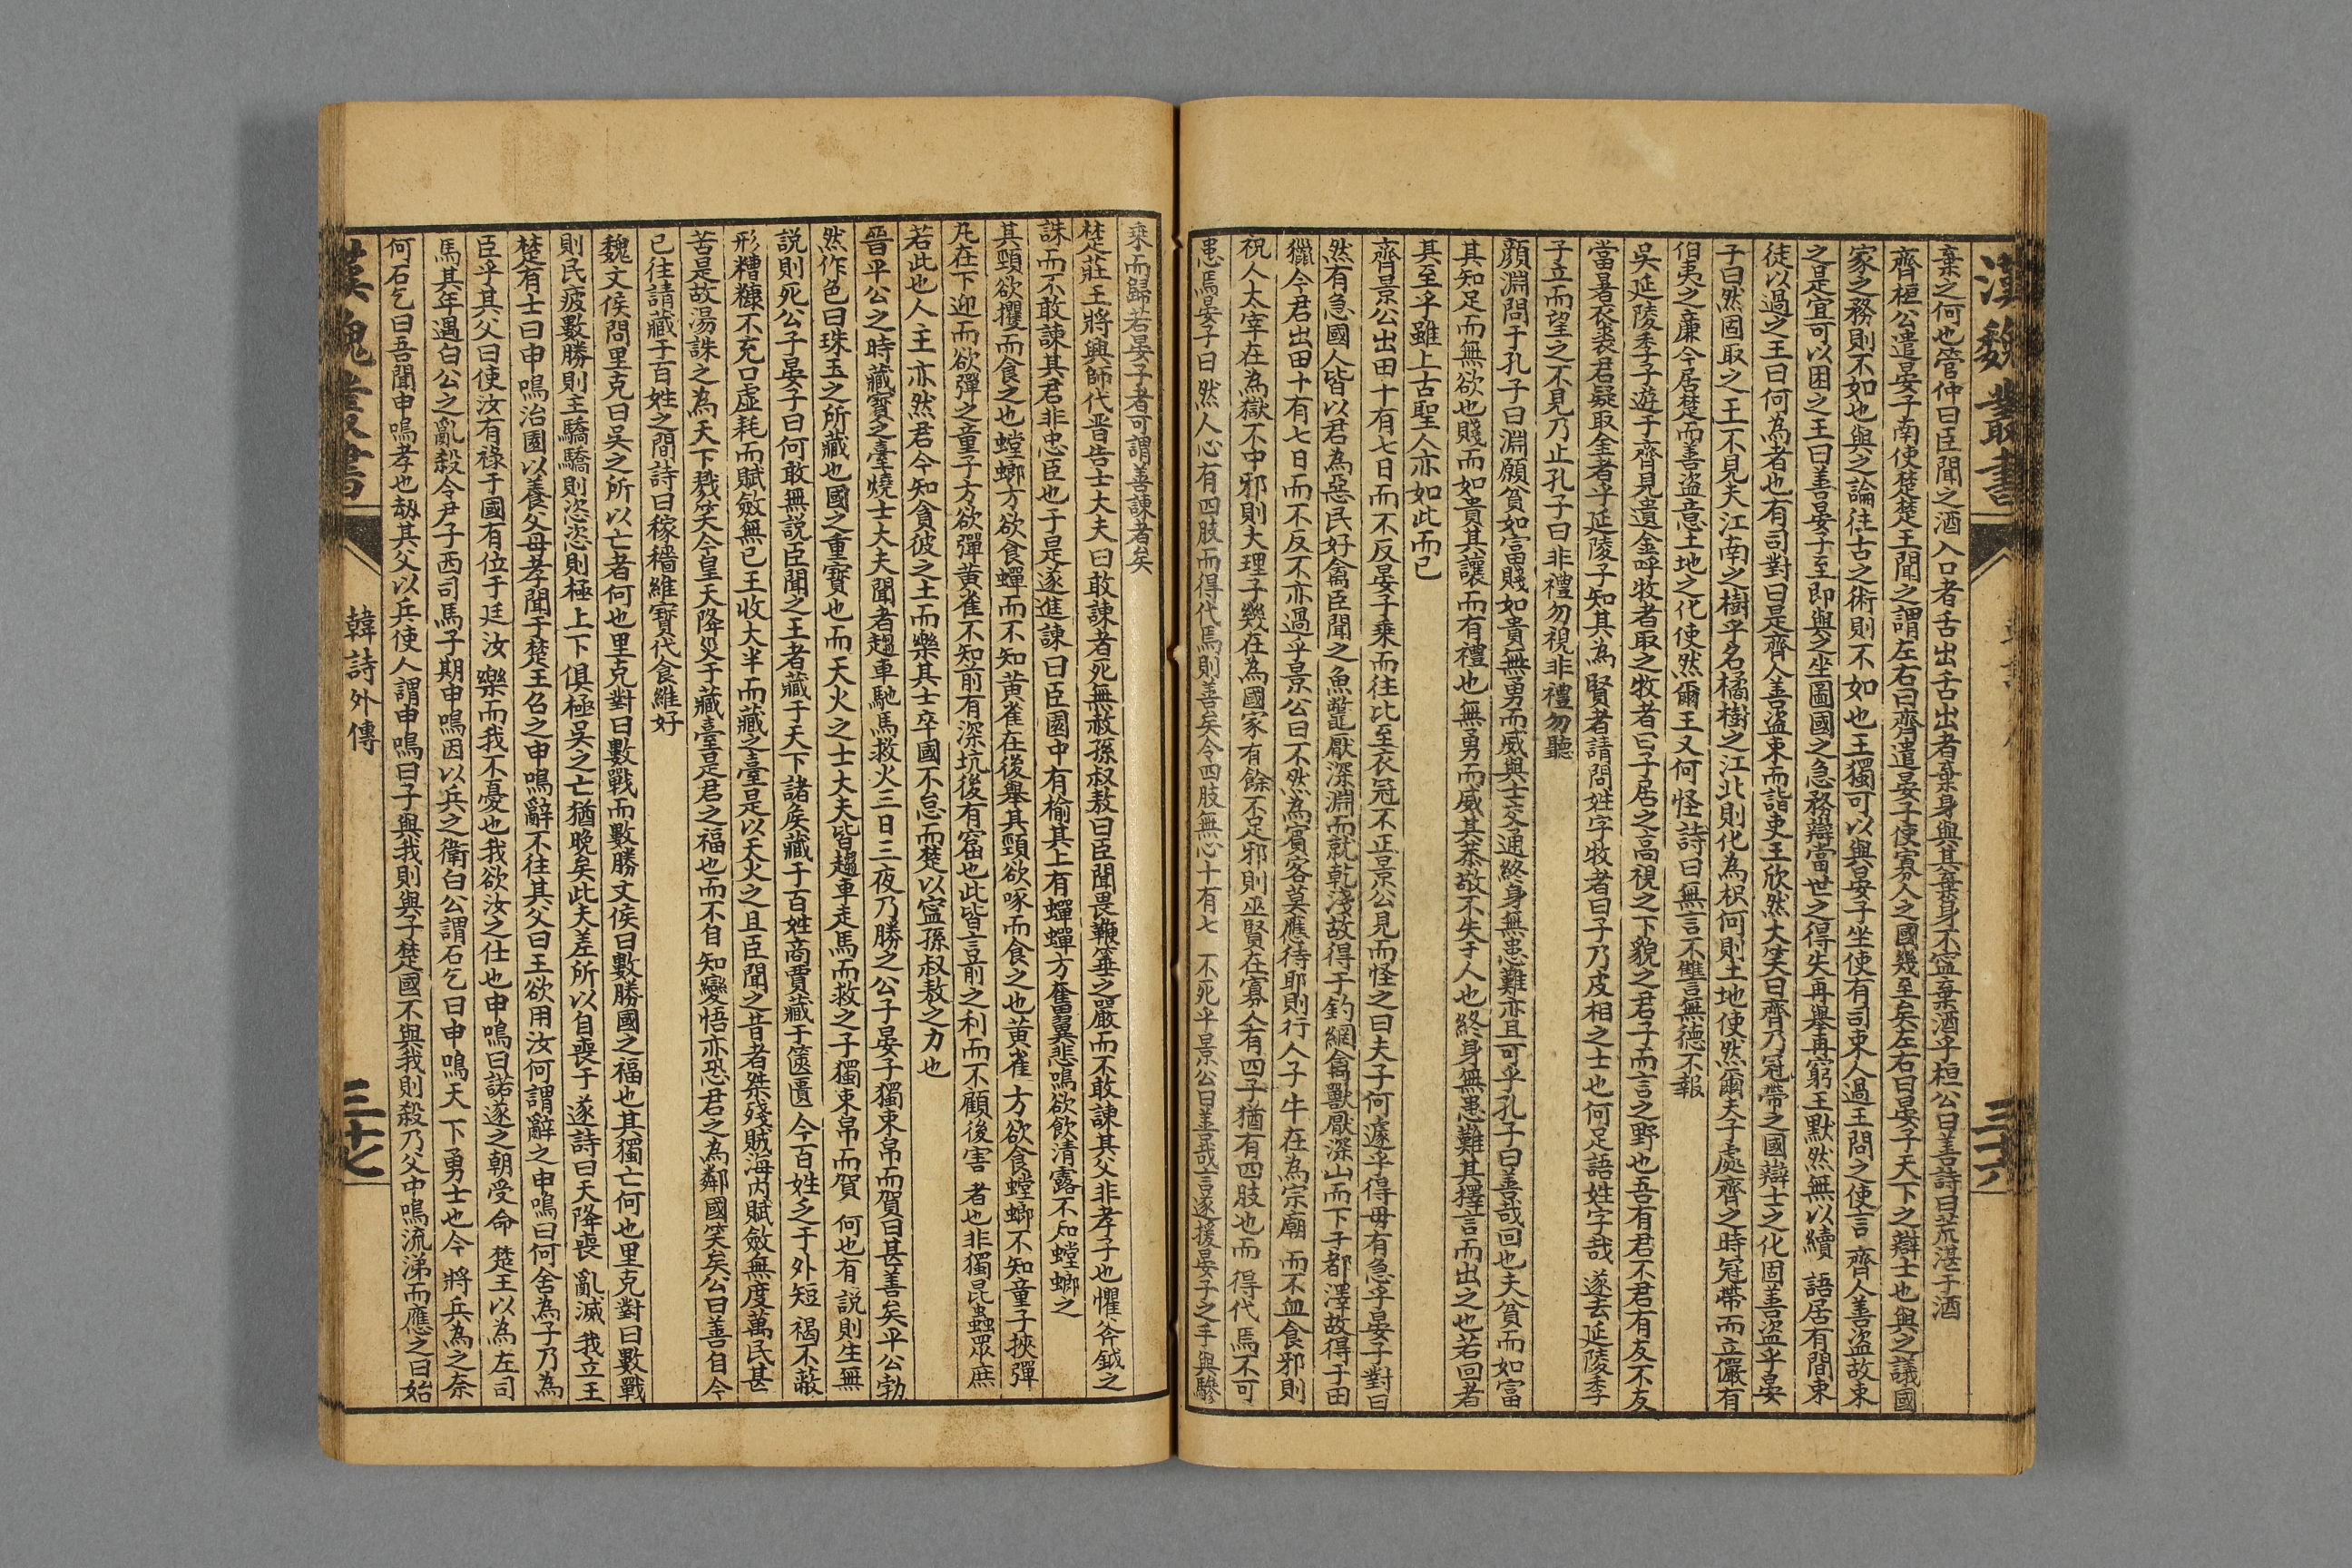 漢魏叢書
三十六
棄之何也管仲曰臣聞之酒入口者舌出舌出者棄身與其棄身不寍棄酒乎桓公曰善詩曰荒湛于酒
齊桓公遣晏子南使楚楚王聞之謂左右曰齊遣晏子使寡人之國幾至矣左右曰晏子天下之辯士也與之議國
家之務則不如也與之論往古之術則不如也王獨可以與晏子坐使有司束人過王問之使言齊人善盜故束
之是宜可以困之王曰善晏子至即與之坐圖國之急務辯當世之得失再舉再窮王默然無以續語居有間束
徒以過之王曰何為者也有司對曰是齊人善盜束而詣吏王欣然大笑曰齊乃冠帶之國辯士之化固善盜乎晏
子曰然固取之王不見夫江南之樹乎名橘樹之江北則化為枳何則土地使然爾夫子處齊之時冠帶而立儼有
伯夷之廉今居楚而善盜意土地之化使然爾王又何怪詩曰無言不讐言無德不報
吳延陵季子遊于齊見遺金呼牧者取之牧者曰子居之高視之下貌之君子而言之野也吾有君不君有友不友
當暑衣裘君疑取金者乎延陵子知其為賢者請問姓字牧者曰子乃皮相之士也何足語姓字哉遂去延陵季
子立而望之不見乃止孔子曰非禮勿視非禮勿聽
顏淵問于孔子曰淵願貧如富賤如貴無勇而威與士交通終身無患難亦且可乎孔子曰善哉回也夫貧而如富
其知足而無欲也賤而如貴其讓而有禮也無勇而威其恭敬不失于人也終身無患難其擇言而出之也若回者
其至乎雖上古聖人亦如此而已
齊景公出田十有七日而不反晏子乘而往比至衣冠不正景公見而怪之曰夫子何遽乎得毋有急乎晏子對曰
然有急國人皆以君為惡民好禽臣聞之魚鼈厭深淵而就乾淺故得于釣網禽獸厭深山而下于都澤故得于田
獵今君出田十有七日而不反不亦過乎景公曰不然為賓客莫應待耶則行人子牛在為宗廟而不血食邪則
祝人太宰在為獄不中邪則大理子幾在為國家有餘不足邪則巫賢在寡人有四子猶有四肢也而得代焉不可
患焉晏子曰然人心有四肢而得代焉則善矣令四肢無心十有七不死乎景公曰善哉言遂援晏子之手與驂
乘而歸若晏子者可謂善諫者矣
楚莊王將興師代晋告士大夫曰敢諫者死無赦孫叔敖曰臣聞畏鞭箠之嚴而不敢諫其父非孝子也懼斧鉞之
誅而不敢諫其君非忠臣也于是遂進諫曰臣園中有榆其上有蟬蟬方奮翼悲鳴欲飲清露不知螳螂之
其頸欲攫而食之也螳螂方欲食蟬而不知黃雀在後舉其頸欲啄而食之也黃雀方欲食螳螂不知童子挾彈
凡在下迎而欲彈之童子方欲彈黃雀不知前有深坑後有窟也此皆言前之利而不顧後害者也非獨昆蟲眾庶
若此也人主亦然君今知貪彼之土而樂其士卒國不怠而楚以寍孫叔敖之力也
晉平公之時藏寶之臺燒士大夫聞者趨車馳馬救火三日三夜乃勝之公子晏子獨束帛而賀曰甚善矣平公勃
然作色曰珠玉之所藏也國之重寶也而天火之士大夫皆趨車走馬而救之子獨束帛而賀何也有説則生無
説則死公子晏子曰何敢無説臣聞之王者藏于天下諸矦藏于百姓商賈藏于篋匱今百姓乏于外短褐不蔽
形糟糠不充口虛耗而賦斂無已王收大半而藏之臺是以天火之且臣聞之昔者桀殘賊海内賦斂無度萬民甚
苦是故湯誅之為天下戮笑今皇天降災于藏臺是君之福也而不自知變悟亦恐君之為鄰國笑矣公曰善自今
已往請藏于百姓之間詩曰稼穡維寶代食維好
魏文侯問里克曰吳之所以亡者何也里克對曰數戰而數勝文侯曰數勝國之福也其獨亡何也里克對曰數戰
則民疲數勝則主驕驕則恣恣則極上下俱極吳之亡猶晚矣此夫差所以自喪于遂詩曰天降喪亂滅我立王
楚有士曰申鳴治國以養父母孝聞于楚王召之申鳴辭不往其父曰王欲用汝何謂辭之申鳴曰何舍為子乃為
臣乎其父曰使汝有祿于國有位于廷汝樂而我不憂也我欲汝之仕也申鳴曰諾遂之朝受命楚王以為左司
馬其年遇白公之亂殺令尹子西司馬子期申鳴因以兵之衛白公謂石乞曰申鳴天下勇士也今將兵為之奈
何石乞曰吾聞申鳴孝也劫其父以兵使人謂申鳴曰子與我則與子楚國不與我則殺乃父申鳴流涕而應之曰始
漢魏叢書
韓詩外傳
三十七